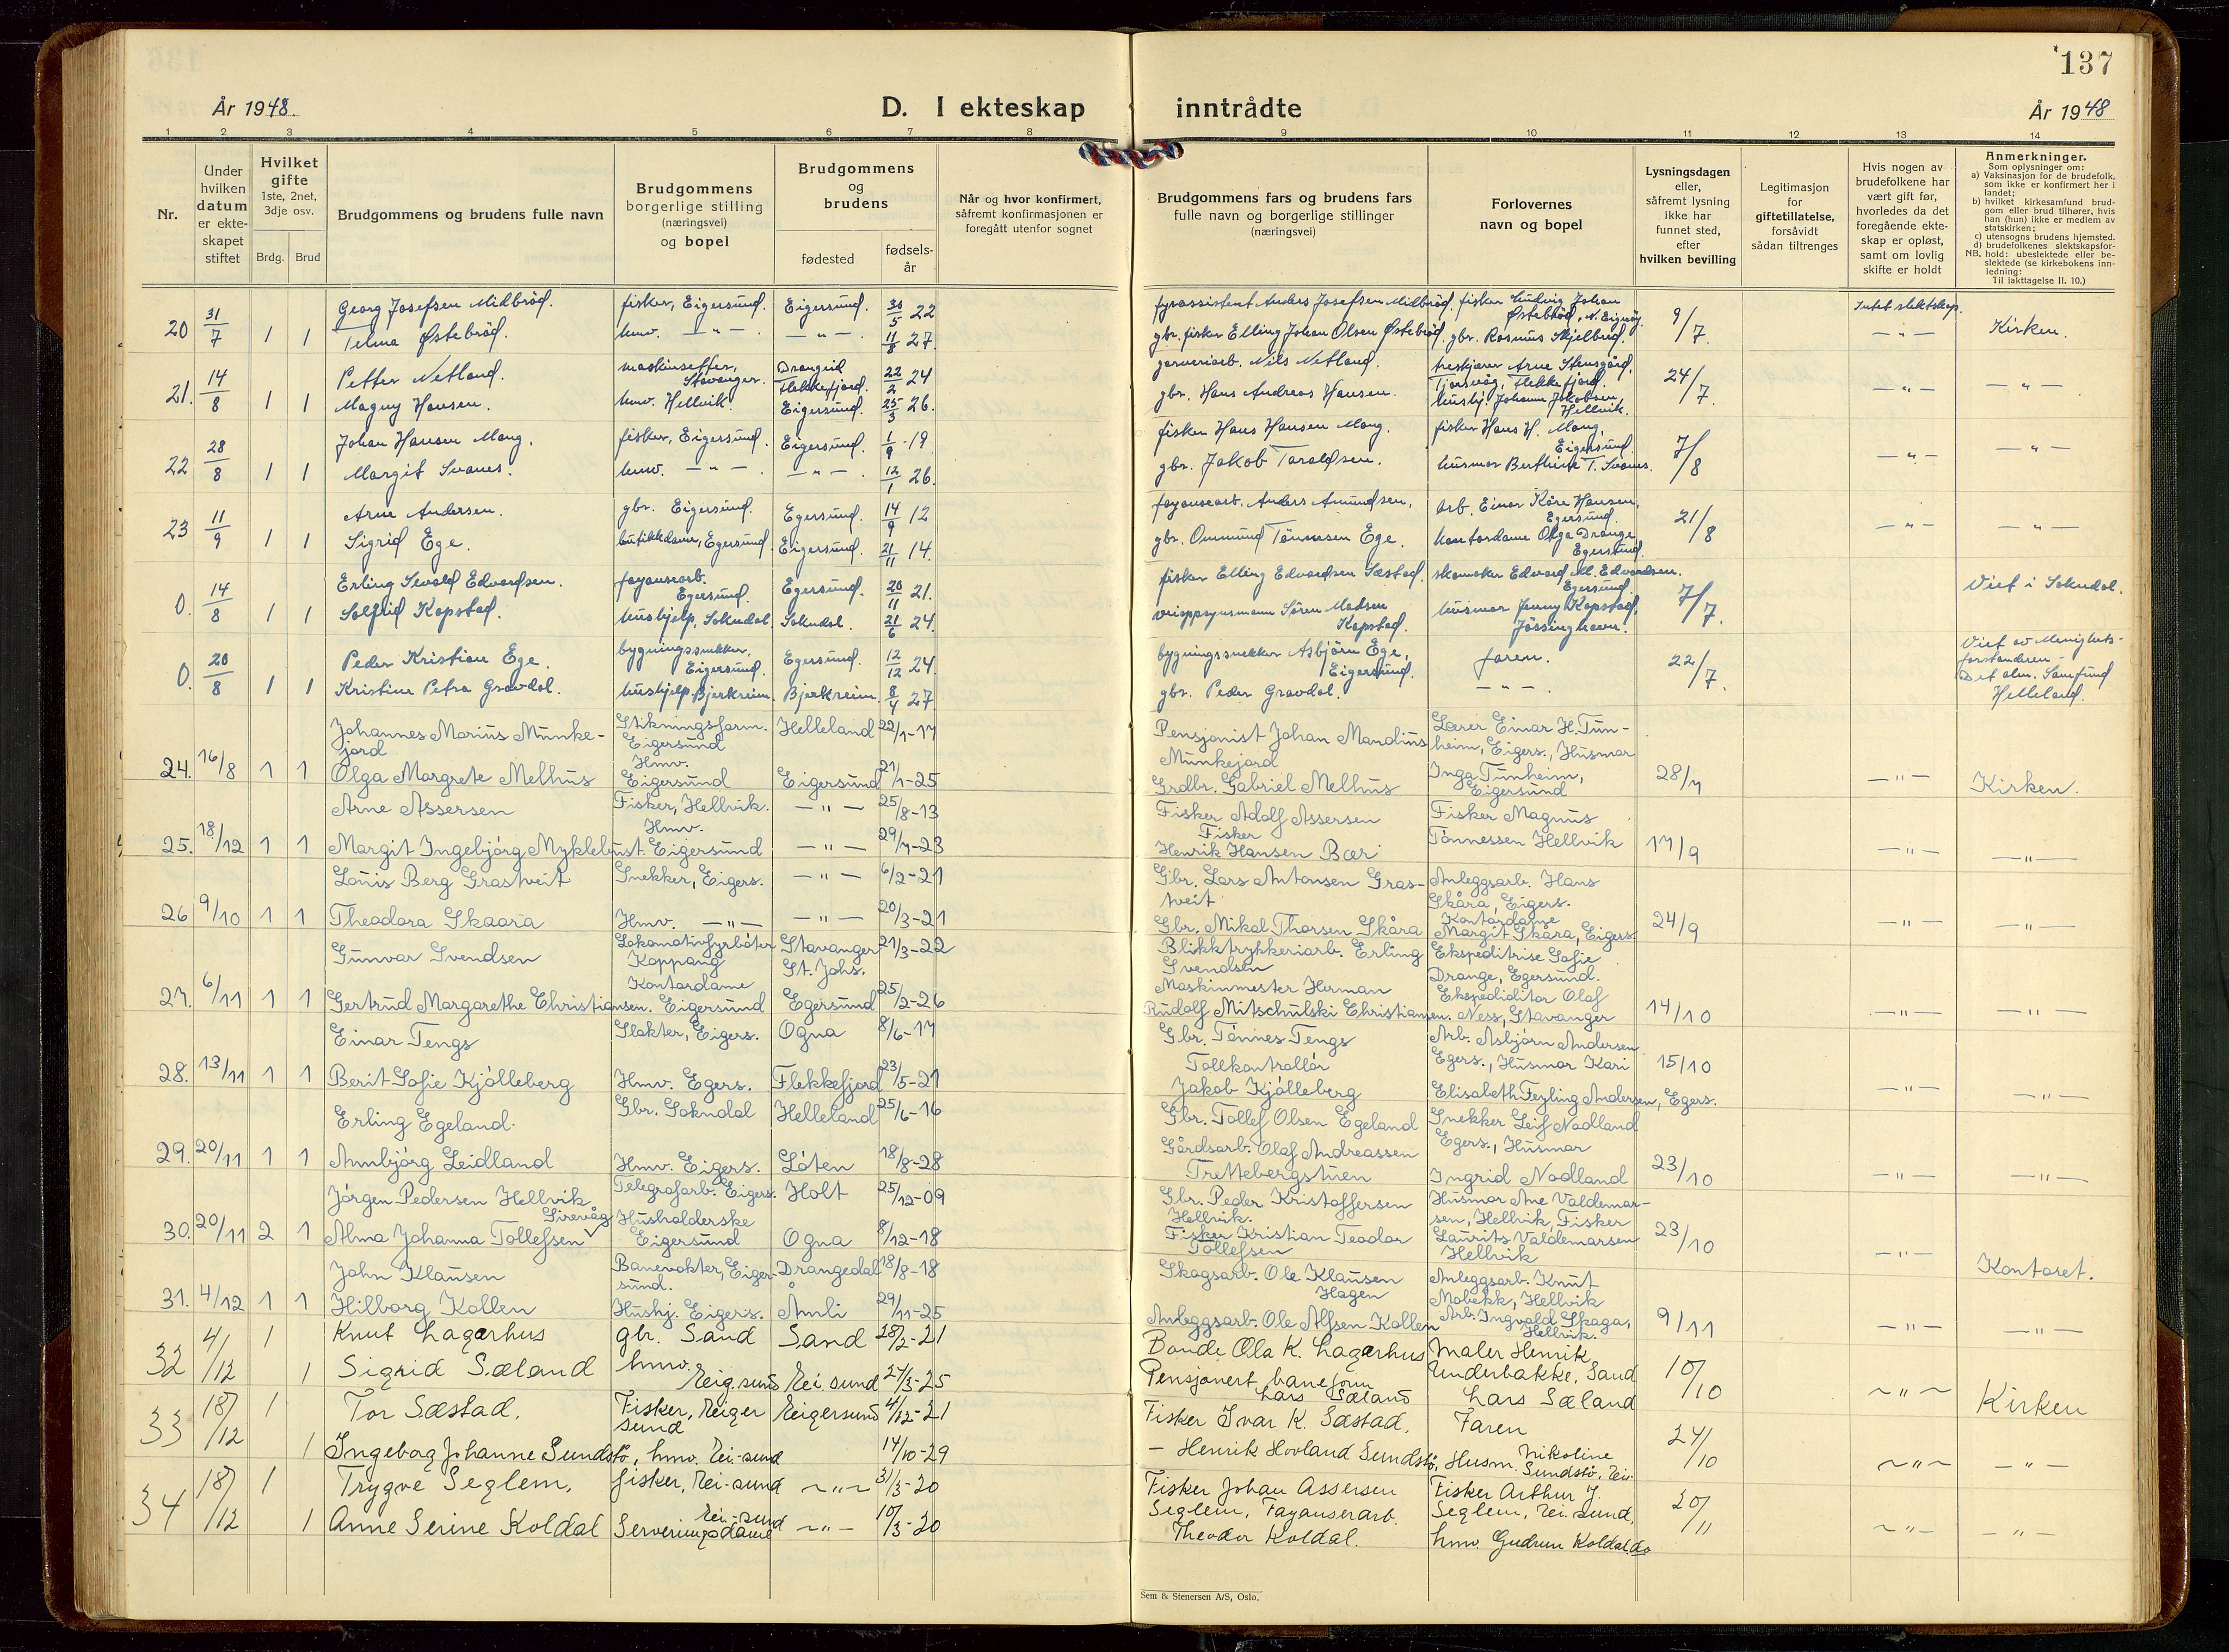 137
År 1948.
D. I ekteskap inntrådte
År 1948
1 2 3 4 5 6 7 8 9 10 11 12 13 14
Nr.
Under hvilken datum er ekteskapet stiftet
Hvilket gifte 1ste, 2net, 3dje osv.
Brdg. Brud
Brudgommens og brudens fulle navn
Brudgommens borgerlige stilling (næringsvei) og bopel
Brudgommens og brudens
fødested
fødsels-år
Når og hvor konfirmert, såfremt konfirmasjonen er foregått utenfor sognet
Brudgommens fars og brudens fars fulle navn og borgerlige stillinger (næringsvei)
Forlovernes navn og bopel
Lysningsdagen eller, såfremt lysning ikke har funnet sted, efter hvilken bevilling
Legitimasjon for giftetillatelse, forsåvidt sådan tiltrenges
Hvis nogen av brudefolkene har vært gift før, hvorledes da det foregående ekteskap er opløst, samt om lovlig skifte er holdt
Anmerkninger.
Som oplysninger om:
a) Vaksinasjon for de brudefolk, som ikke er konfirmert her i landet;
b) hvilket kirkesamfund brudgom eller brud tilhører, hvis han (hun) ikke er medlem av statskirken;
c) utensogns brudens hjemsted.
d) brudefolkenes slektskapsforhold: ubeslektede eller beslektede (se kirkebokens innledning:
NB.
Til iakttagelse II. 10.)
20 31/7 1 1 Georg Josefsen Midbrød. fisker, Eigersund. Eigersund. 30/5 22 fyrassistent Anders Josefsen Midbrød. fisker Ludvig Johan Østebrød, N. Eigerøy. 9/7. Intet slektskap.
Telma Østebrød. hmv. — " — . — " — 11/8 27. gbr. fisker Elling Johan Olsen Østebrød. gbr. Rasmus Skjelbred. — " — Kirken.
21. 14/8 1 1 Petter Netland. maskinsetter, Stavanger. Drangeid Flekkefjord. 22/2 24 garveriarb. Nils Netland. treskjærer Arne Stensgård, Tjørsvåg, Flekkefjord. 24/7.
Magny Hansen. hmv. Hellvik. Eigersund. 25/3 26. gbr. Hans Andreas Hansen. hushj. Johanne Jakobsen, Hellvik. — " — — " —
22 28/8 1 1 Johan Hansen Mong. fisker, Eigersund. Eigersund. 1/9 -19 fisker Hans Hansen Mong. fisker Hans H. Mong, Eigersund. 7/8
Margit Svanes. hmv. — " — . — " — 12/1 26. gbr. Jakob Taraldsen. husmor Berthine T. Svanes. — " — — " —
23 11/9 1 1 Arne Andersen. gbr. Eigersund. Egersund. 14/9 12 fayansearb. Anders Amundsen. arb. Einar Kåre Hansen, Egersund. 21/8
Sigrid Ege. butikkdame, Egersund. Eigersund. 21/11 14. gbr. Ommund Tønnesen Ege. kontordame Olga Drange Egersund. — " — — " —
0. 14/8 1 1 Erling Sevald Edvardsen. fayansearb. Egersund. Egersund. 20/11 21. fisker Elling Edvardsen Sæstad. skomaker Edvard M. Edvardsen. Egersund. 7/7. Viet i Sokndal.
Solfrid Kopstad. hushjelp, Sokndal. Sokndal. 21/6 24. Søren Madsen Kopstad. husmor Jenny Kopstad, Jössinghavn.
0. 20/8 1 1 Peder Kristian Ege. bygningssnekker, Eigersund. Egersund. 12/12 24 bygningssnekker Asbjørn Ege, Eigersund. faren. 22/7. Viet av Menighetsforstanderen - Det alm. Samfund Helleland.
Kristine Petra Gravdal. hushjelp, Bjerkreim. Bjerkreim. 8/4 27. gbr. Peder Gravdal. — " — .
24. 16/8 1 1 Johannes Marius Munkejord Stikningsform. Eigersund Helleland 22/1-17 Pensjonist Johan Mandius Munkejord Lærer Einar H. Tunheim, Eigers., Husmor
Olga Margrete Melhus Hmv. Eigersund Eigersund 21/1-25 Grdbr. Gabriel Melhus Inga Tunheim, Eigersund 28/7 — " — Kirken.
25. 18/12 1 1 Arne Assersen Fisker, Hellvik. — " — 25/8-13 Fisker Adolf Assersen Fisker Magnus
Margit Ingebjörg Myklebust. Hmv. Eigersund — " — 29/7-23 Fisker Henrik Hansen Bær Tönnessen Hellvik 17/9 — " — — " —
26 9/10 1 1 Louis Berg Grastveit Snekker, Eigers. — " — 6/2-21 Gbr. Lars Antonsen Grastveit Anleggsarb. Hans Skåra, Eigers.
Theodora Skaara Hmv. — " — — " — 20/3-21 Gbr. Mikal Thorsen Skåra Kontordame Margit Skåra, Eigers. 24/9 — " — — " —
27. 6/11 1 1 Gunvar Svendsen Lokomotivfyrböter Koppang Stavanger St. Johs. 21/3-22 Blikktrykkeriarb. Erling Svendsen Ekspeditrise Sofie Drange, Egersund.
Gertrud Margarethe Christiansen. Kontordame Eigersund Egersund 25/2-26 Maskinmester Herman Rudolf Mitschulski Christiansen. Ekspeditor Olaf Ness, Stavanger 14/10 — " — — " —
28. 13/11 1 1 Einar Tengs Slakter, Eigers. Ogna 8/6-17 Gbr. Tönnes Tengs Arb. Asbjörn Andersen Egers., Husmor Kari 15/10
Berit Sofie Kjölleberg Hmv. Egers. Flekkefjord 23/5-21 Tollkontrollör Jakob Kjölleberg Elisabeth Feyling Andersen, Egers. — " — — " —
29. 20/11 1 1 Erling Egeland. Gbr. Sokndal Helleland 25/6-16 Gbr. Tollef Olsen Egeland Snekker Leif Nodland Egers., Husmor
Annbjörg Leidland Hmv. Eigers. Löten 18/8-28 Gårdsarb. Olaf Andreassen Trettebergstuen Ingrid Nodland 23/10 — " — — " —
30. 20/11 2 1 Jörgen Pedersen Hellvik Telegrafarb. Eigers. Holt 25/12-09 Gbr. Peder Kristoffersen Hellvik. Husmor Ane Valdemarsen, Hellvik, Fisker
Alma Johanna Tollefsen Sirevåg Husholderske Eigersund Ogna 8/12-18 Fisker Kristian Teodor Tollefsen Laurits Valdemarsen Hellvik 23/10 — " — Kontoret.
31. 4/12 1 1 John Klausen Banevokter, Eigersund. Drangedal 18/8-18 Skogsarb. Ole Klausen Hagen Anleggsarb. Knut Mobekk, Hellvik
Hilborg Kollen Hushj. Eigers. Åmli 29/11-25 Anleggsarb. Ole Alfsen Kollen Arb. Ingvald Skaga, Hellvik. 9/11 — " — — " —
32 4/12 1 Knut Lagerhus gbr. Sand Sand 28/2-21 Bonde Ola K. Lagerhus Maler Henrik Underbakke, Sand 10/10
1 Sigrid Sæland hmv. Eig.sund Ei.sund 27/3-25 Pensjonert baneform Lars Sæland Lars Sæland ~ " ~ Kirken
33 18/12 1 Tor Sæstad. Fisker, Eigersund Eigersund 4/12-21 Fisker Ivar K. Sæstad. Faren 24/10
1 Ingeborg Johanne Sundstö, hmv. Ei.-sund 14/10-29 — Henrik Hovland Sundstö. Husm. Nikoline Sundstö, Ei- ~ " ~ — " —
34 18/12 1 Trygve Seglem, fisker, Ei-sund ~ " ~ 31/3-20 Fisker Johan Assersen Seglem, Fisker Arthur J. Seglem, Ei.sund. 20/11
1 Anne Serine Koldal Serveringsdame Ei.-sund ~ " — 10/3-20 Fayanserarb. Theodor Koldal. hmv. Gudrun Koldal. do ~ " — — " —
Sem & Stenersen A/S, Oslo.